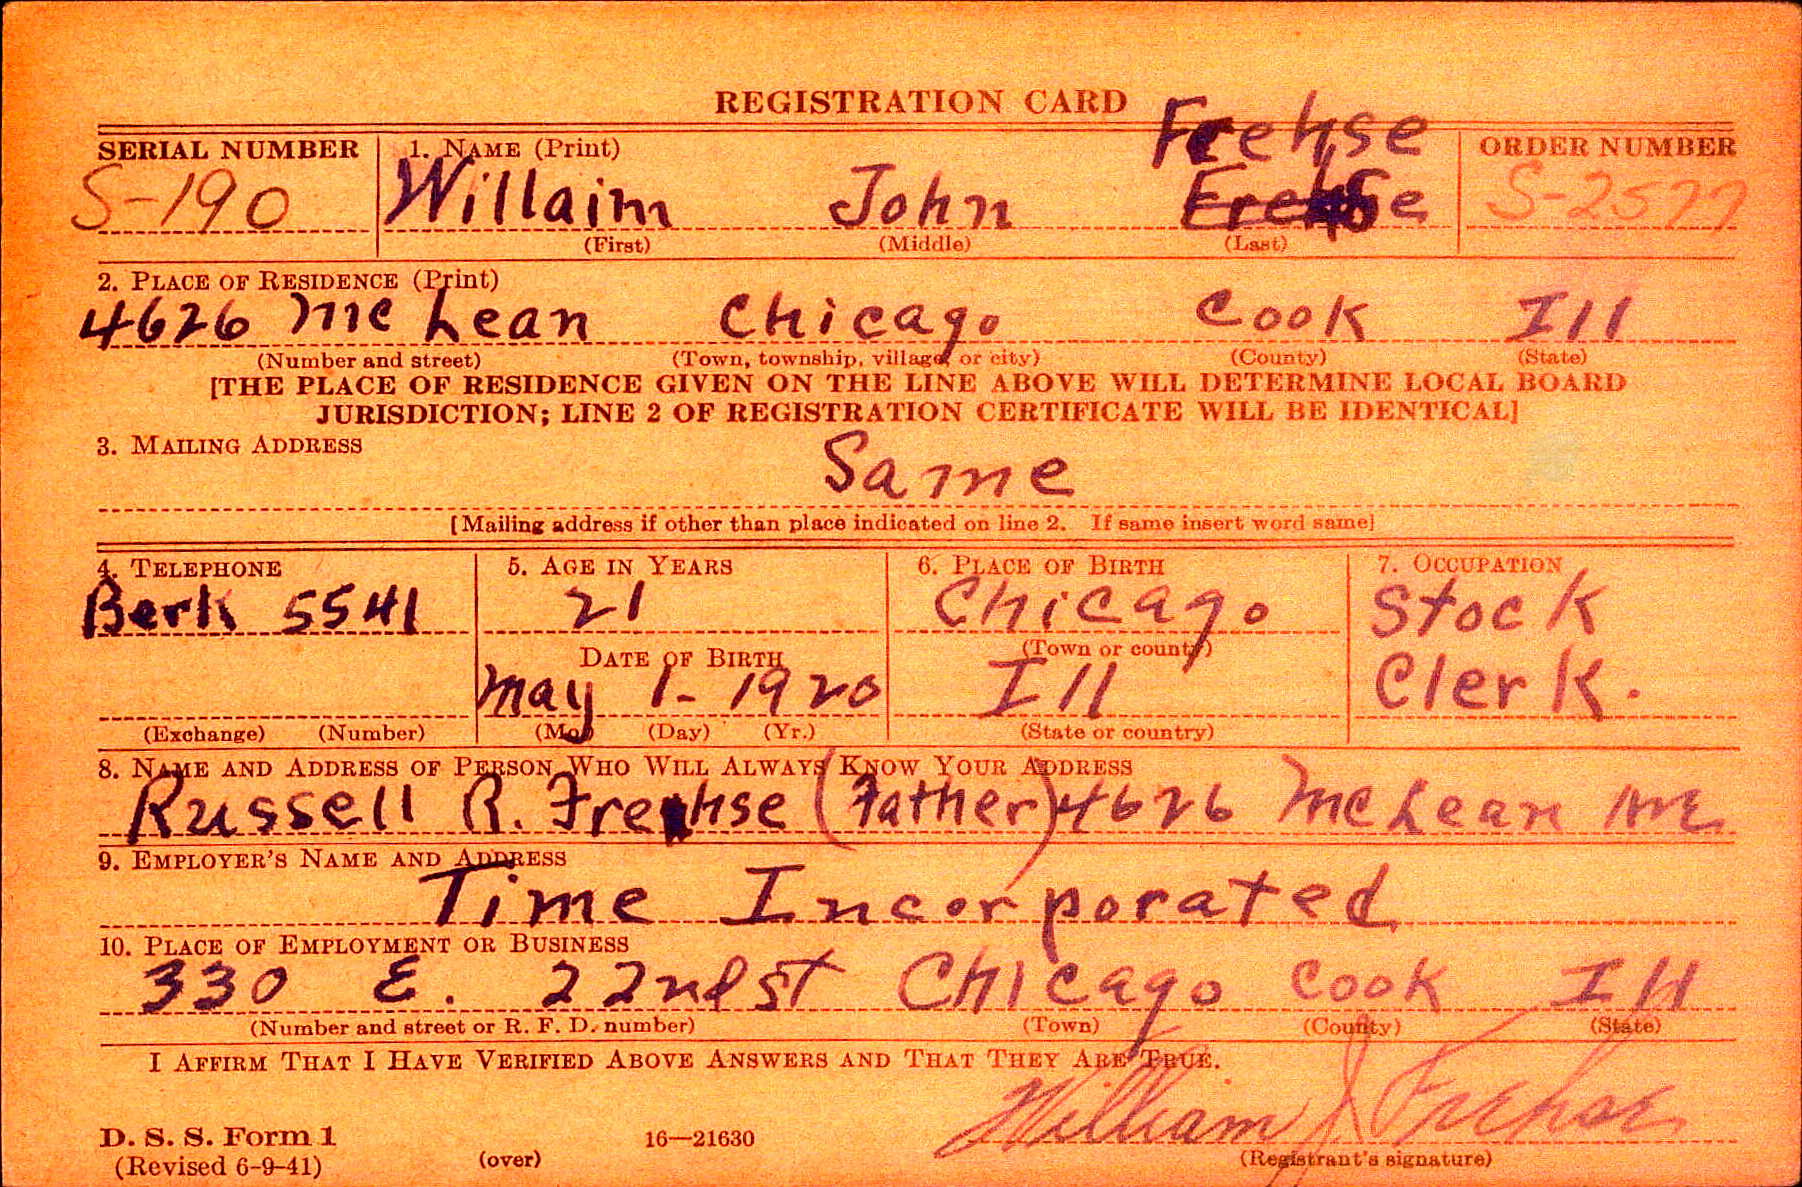 REGISTRATION CARD
SERIAL NUMBER 1. NAME (Print) Frehse ORDER NUMBER
S-190 Willaim John S-2577
(First) (Middle) (Last)
2. PLACE OF RESIDENCE (Print)
4626 Mc Lean Chicago Cook Ill
(Number and street) (Town, township, village, or city) (County) (State)
[THE PLACE OF RESIDENCE GIVEN ON THE LINE ABOVE WILL DETERMINE LOCAL BOARD
JURISDICTION; LINE 2 OF REGISTRATION CERTIFICATE WILL BE IDENTICAL]
3. MAILING ADDRESS
Same
[Mailing address if other than place indicated on line 2. If same insert word same]
4. TELEPHONE 5. AGE IN YEARS 6. PLACE OF BIRTH 7. OCCUPATION
Berk 5541 21 Chicago Stock
DATE OF BIRTH (Town or county)
May 1- 1920 Ill Clerk.
(Exchange) (Number) (Mo.) (Day) (Yr.) (State or country)
8. NAME AND ADDRESS OF PERSON WHO WILL ALWAYS KNOW YOUR ADDRESS
Russell R. Frehse (Father) 4626 McLean Ave
9. EMPLOYER'S NAME AND ADDRESS
Time Incorporated
10. PLACE OF EMPLOYMENT OR BUSINESS
330 E. 22nd St Chicago Cook Ill
(Number and street or R. F. D. number) (Town) (County) (State)
I AFFIRM THAT I HAVE VERIFIED ABOVE ANSWERS AND THAT THEY ARE TRUE.
William J Frehse
D. S. S. Form 1 16—21630
(Revised 6-9-41) (over) (Registrant's signature)